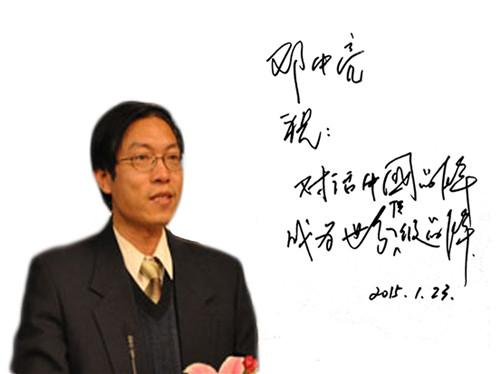 邓中亮
祝:
对话中国品牌
成为世界顶级品牌
2015.1.23.